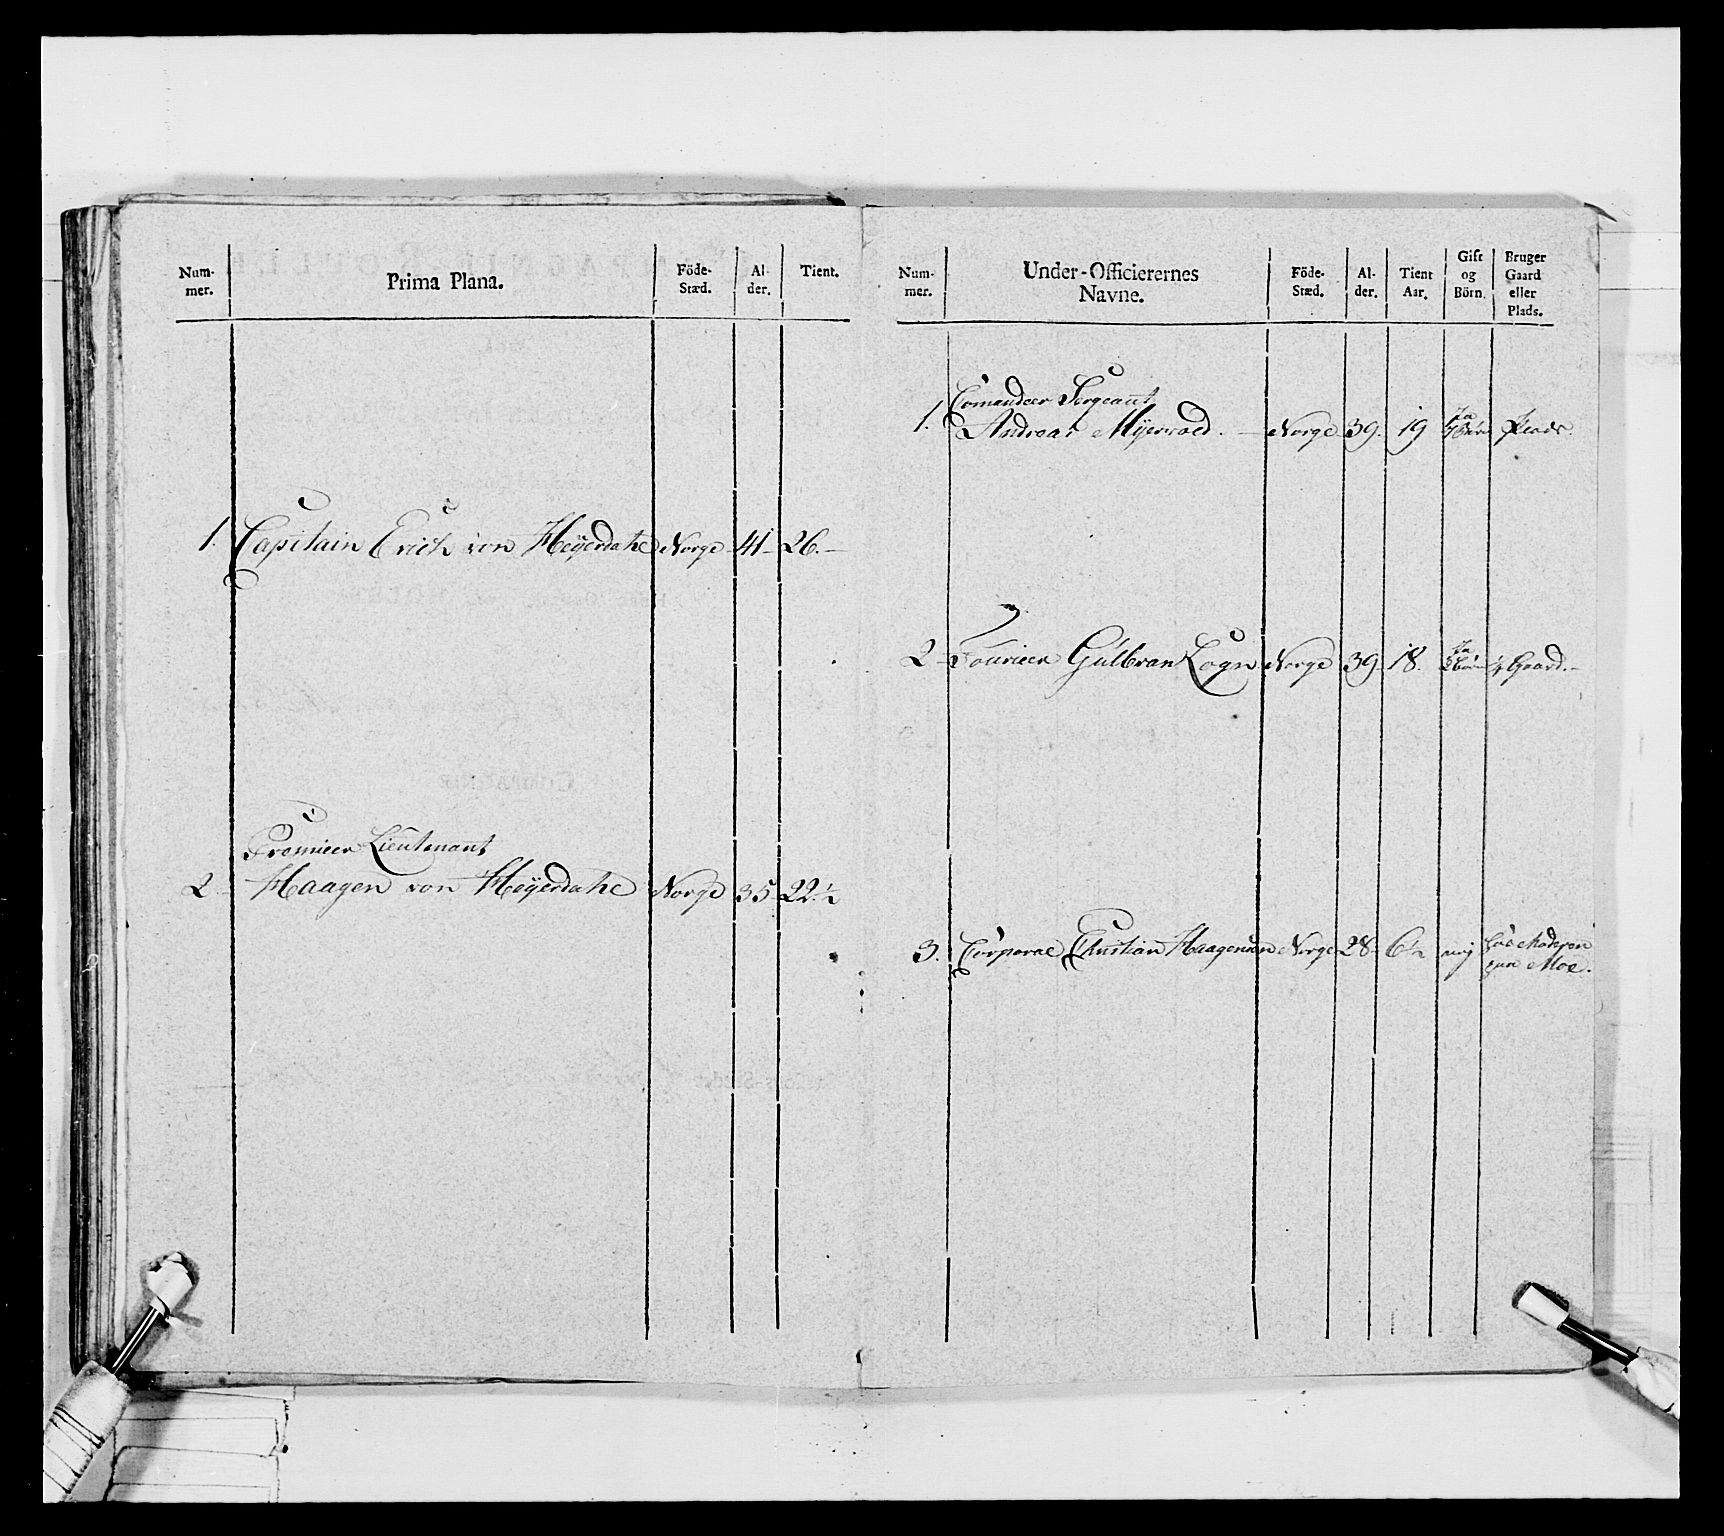 Num-
mer.
Prima Plana.
Föde-
Stæd.
Al-
der.
Tient.
1. Capitain Erich von Heyerdahl Norge 41 26.
Premieer Lieutenant
2 Haagen von Heyerdahl Norge 35 22 1/2
Num-
mer.
Under-Officierernes
Navne.
Föde-
Stæd.
Al-
der.
Tient
Aar.
Gift
og
Börn.
Bruger
Gaard
eller
Plads.
Comandeer Sergeant
1. Andreas Norge 39. 19 Ja Plads.
2 Fourieer Gulbran Logn Norge 39. 18. Ja Gaard.
3. Corporal Christian Haagensen Norge 28 6 1/2 Moderen
Moe.